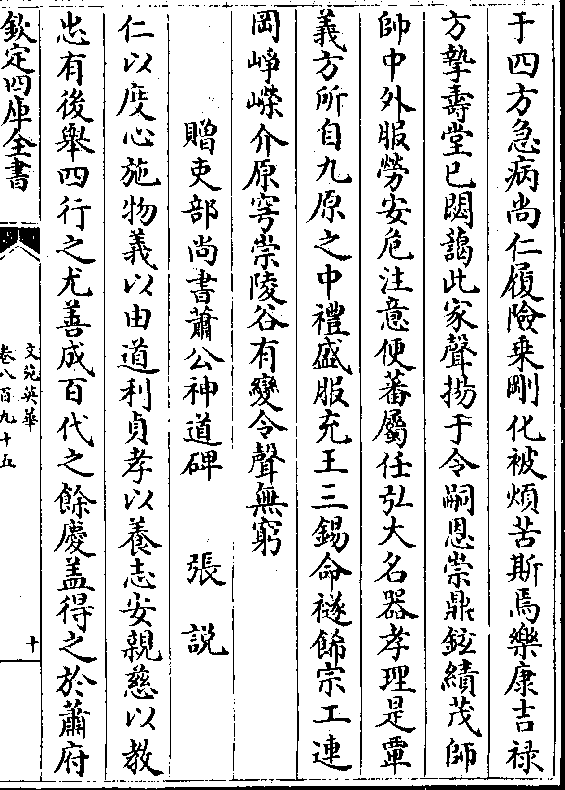 于四方急病尚仁履險乗剛化被煩苦斯焉樂康吉禄
方摯壽堂已閟藹此家聲揚于令嗣恩崇鼎鉉績茂師
帥中外服勞安危注意便蕃屬任弘大名器孝理是覃
義方所自九原之中禮盛服充王三錫命襚飾宗工連
岡崢嶸介原穹崇陵谷有變令聲無窮
贈吏部尚書蕭公神道碑 張説
仁以度心施物義以由道利貞孝以養志安親慈以教
忠有後舉四行之尤善成百代之餘慶盖得之於蕭府
欽定四庫全書
文苑英華
卷八百九十五
十